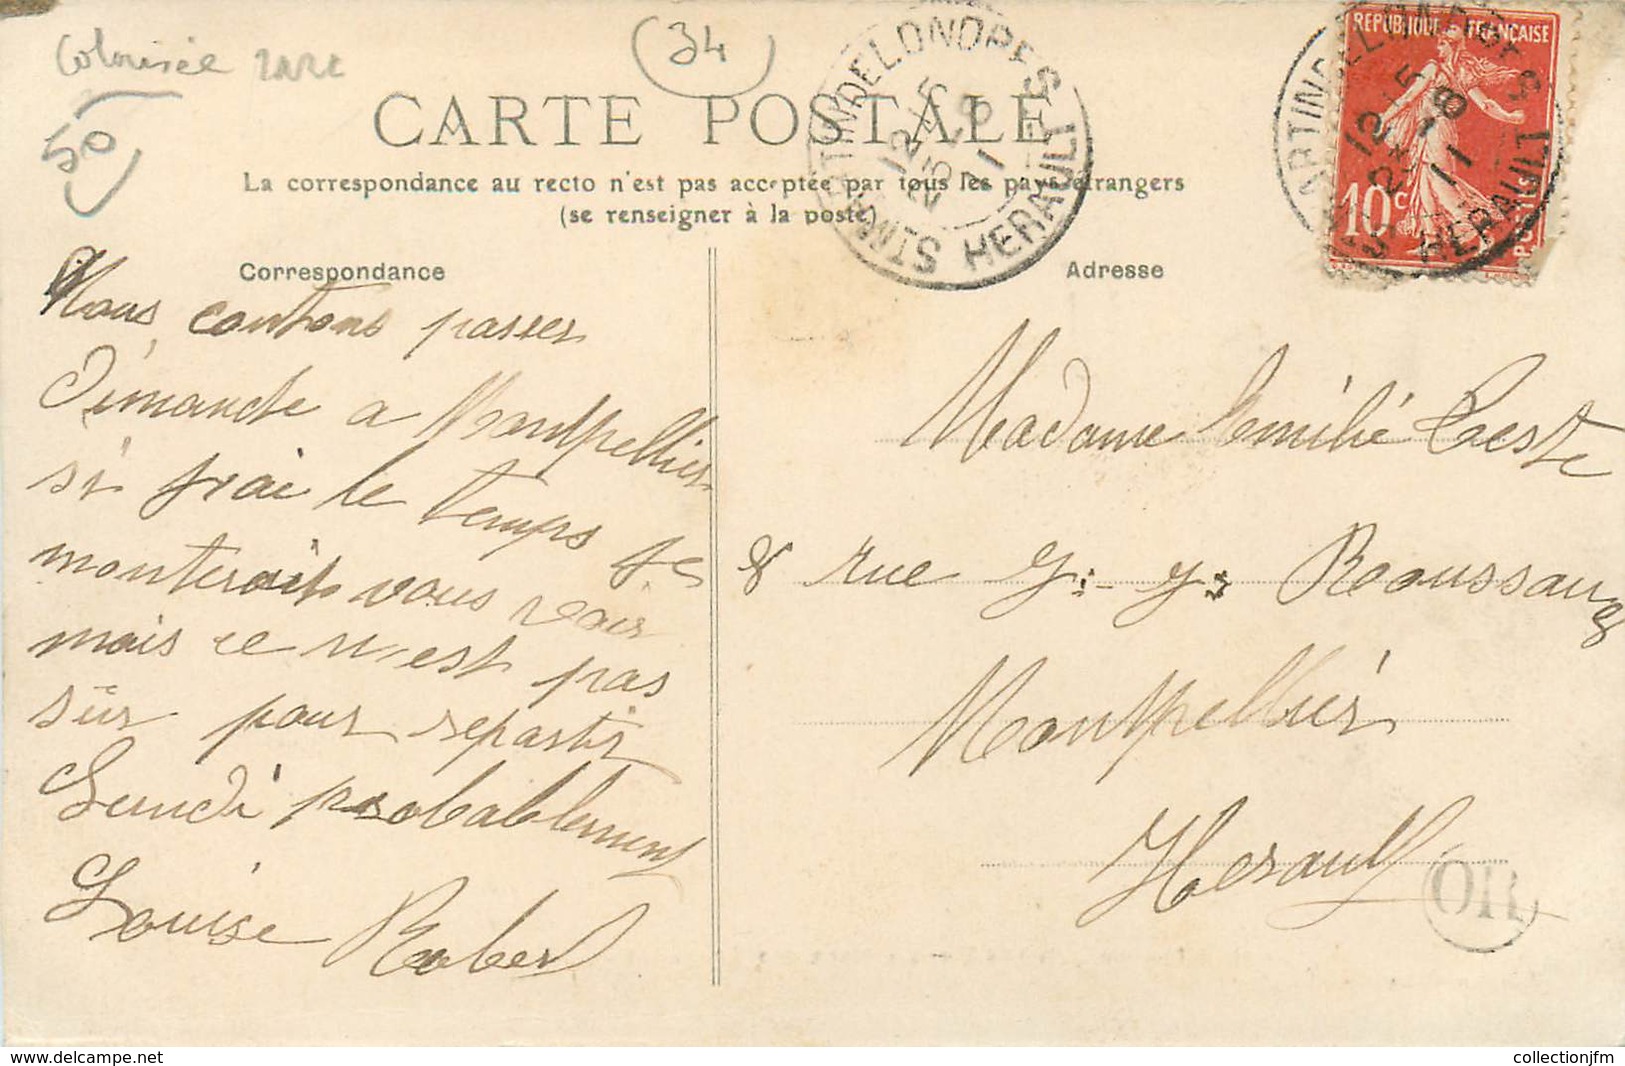 Colorisée rare
34
50
CARTE POSTALE
La correspondance au recto n'est pas acceptée par tous les pays étrangers
(se renseigner à la poste)
Correspondance
Adresse
ST MARTIN DE LONDRES
12 15
25 -8
11
HERAULT
REPUBLIQUE FRANÇAISE
10c
POSTES
Nous contons passer
Dimanche a Montpellier
si frai le temps
monterait vous voir
mais ce n'est pas
sûr pour repartir
Lundi probablement
Louise Rober
Madame Emilie Ceste
8 rue J. J. Roussau
Montpellier
Herault
OR
collectionjfm